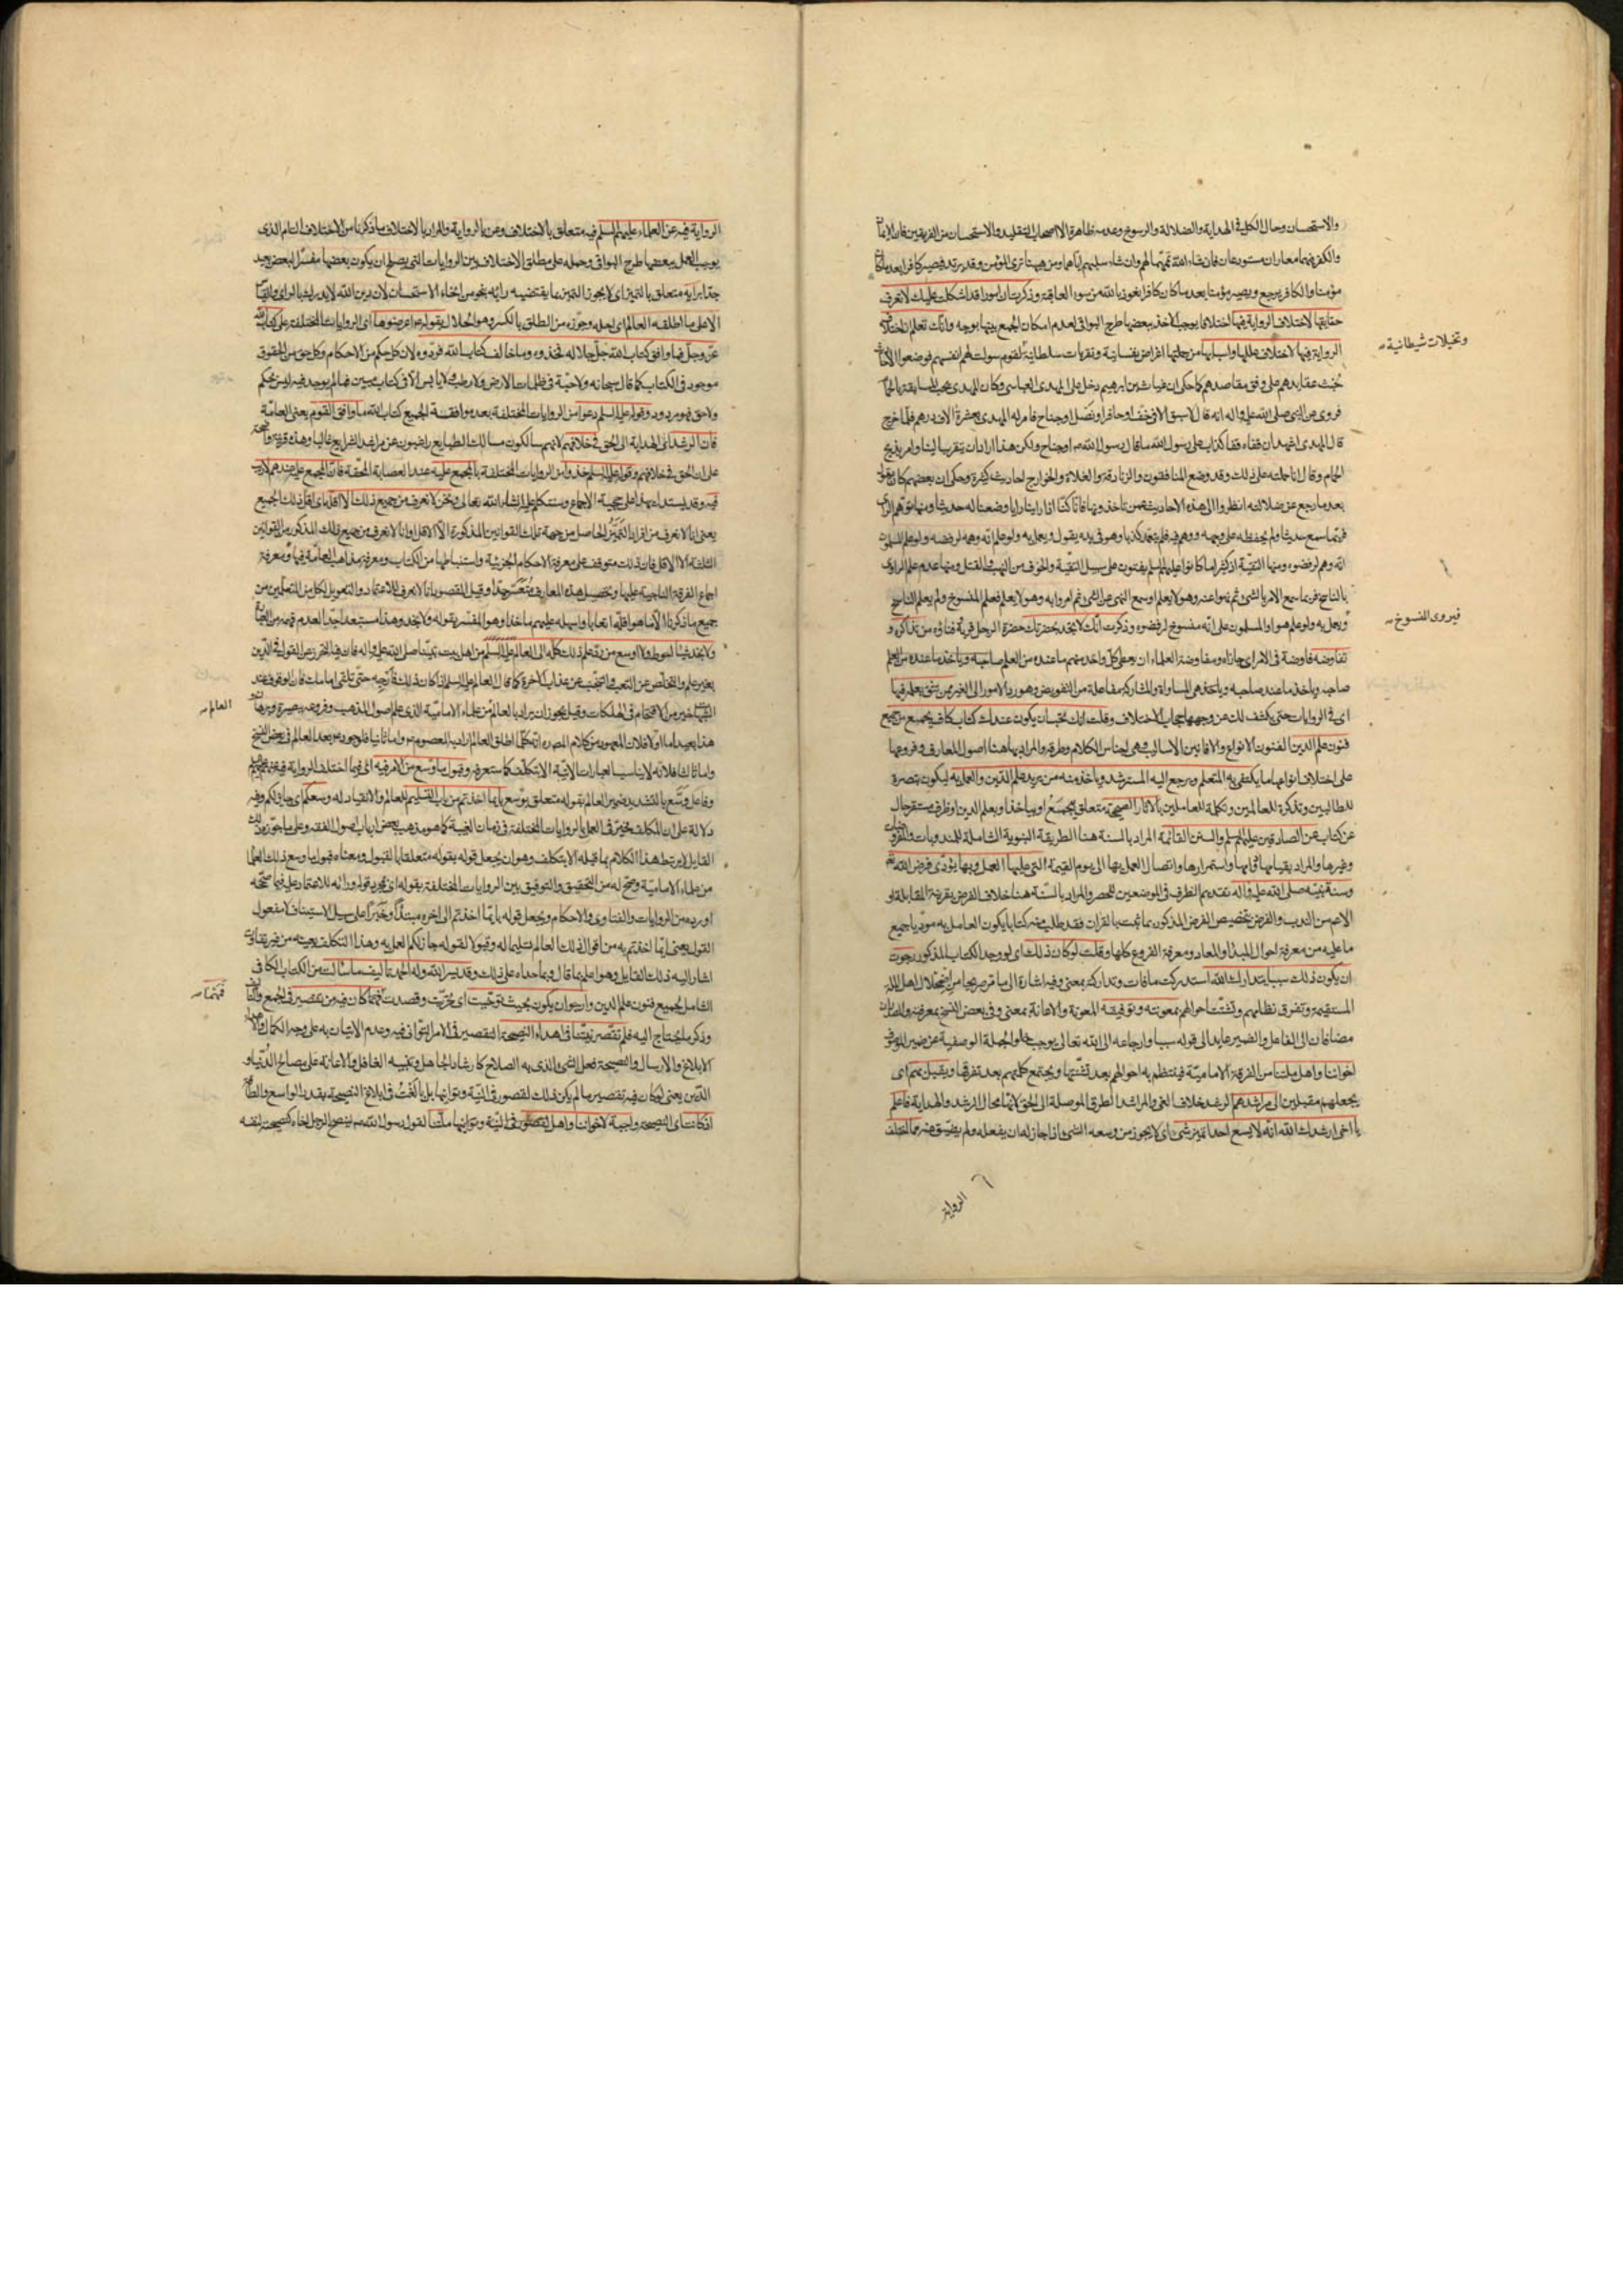 والاستحسان وحال الكل في الهداية والضلالة والرسوخ وعدمه ظاهرة الا اصحاب التقليد والاستحسان من الفريقين فان الايمان
والكفر فيهما معاران مستودعان فان شاء الله تممهما لهم وان شاء سلبهم اياهما ومن هيهنا ترى المؤمن وقد يرتد فيصير كافرا بعد ما كان
مؤمنا والكافر يرجع ويصير مؤمنا بعد ما كان كافرا نعوذ بالله من سوء العاقبة وذكرت ان امورا قد اشكلت عليك لا تعرف
حقايقها لاختلاف الرواية فيها اختلافا يوجب الاخذ ببعضها طرح البواقي لعدم امكان الجمع بينها بوجه وانك تعلم ان اختلاف
الرواية فيها لاختلاف عللها واسبابها من جملتها اغراض نفسانية وتقربات سلطانية لقوم سولت لهم انفسهم فوضعوا الاحاديث
وتخيلات شيطانية
خبث عقايدهم على وفق مقاصدهم كما حكى ان غياث بن ابرهيم دخل على المهدي العباسي وكان المهدي يحب المسابقة بالحمام
فروى عن النبي صلى الله عليه واله انه قال لا سبق الا في خف او حافر او نصل او جناح فامر له المهدي بعشرة الاف درهم فلما خرج
قال المهدي اشهد ان قفاه قفا كذاب على رسول الله ما قال رسول الله ص او جناح ولكن هذا اراد ان يتقرب الينا وامر بذبح
الحمام وقال انا حملته على ذلك وقد وضع المنافقون والزنادقة والغلاة والخوارج احاديث كثيرة وحكى ان بعضهم كان يقول
بعد ما رجع عن ضلالته انظروا الى هذه الاحاديث عمن تاخذونها فانا كنا اذا راينا رايا وضعنا له حديثا ومنها توهم الراوي
فربما سمع حديثا ولم يحفظه على وجهه ووهم فيه فلم يتعمد كذبا وهو في يده يقول ويعمل به ولو علم انه وهم لرفضه ولو علم المسلمون
انه وهم لرفضوه ومنها التقية اذ كثيرا ما كانوا عليهم السلم يفتون على سبيل التقية والخوف من النهب والقتل ومنها عدم علم الراوي
بالناسخ فربما سمع الامر بالشيء ثم نهوا عنه وهو لا يعلم او سمع النهي عن الشيء ثم امروا به وهو لا يعلم فعلم المنسوخ ولم يعلم الناسخ
فيروى المنسوخ
ويعمل به ولو علم هو او المسلمون على انه منسوخ لرفضوه وذكرت انك لا تجد بحضرتك حضرة الرجل قربه وفناؤه من تذاكره و
تفاوضه فاوضه في الامر اي جاراه ومفاوضة العلماء ان يعطي كل واحد منهم ما عنده من العلم صاحبه وياخذ ما عنده من العلم
صاحبه وياخذ ما عند صاحبه وياخذ هي المساواة والمشاركة مفاعلة من التفويض وهو رد الامور الى الغير ممن تثق بعلمه فيها
اي في الروايات حتى يكشف لك عن وجهها حجاب الاختلاف وقلت انك تحب ان يكون عندك كتاب كاف يجمع من جميع
فنون علم الدين الفنون الانواع والافانين الاساليب وهي اجناس الكلام وطرقه والمراد بها هنا اصول المعارف وفروعها
على اختلاف انواعها ما يكتفي به المتعلم ويرجع اليه المسترشد وياخذ منه من يريد علم الدين والعمل به ليكون تبصرة
للطالبين وتذكرة للعالمين وتكملة للعاملين بالاثار الصحيحة متعلق بيجمع او بياخذ او بعلم الدين او ظرف مستقر حال
عن كتاب عن الصادقين عليهم السلم والسنن القائمة المراد بالسنة هنا الطريقة النبوية الشاملة للمندوبات والمفروضات
وغيرها والمراد بقيامها دوامها واستمرارها واتصال العمل بها الى يوم القيمة التي عليها العمل وبها يؤدى فرض الله
وسنة نبيه صلى الله عليه واله تقديم الظرف في الموضعين للحصر والمراد بالسنة هنا خلاف الفرض بقرينة المقابلة او
الاعم من الندب والفرض بتخصيص الفرض المذكور بما ثبت بالقران فقد طلب منه كتابا يكون العامل به مودیا جميع
ما عليه من معرفة احوال المبدأ والمعاد ومعرفة الفروع كلها وقلت لو كان ذلك اي لو وجد الكتاب المذكور رجوت
ان يكون ذلك سببا يتدارك الله استدركت ما فات وتداركته بمعنى وفيه اشارة الى ما مر صريحا من اضمحلال اهل الملة
المستقيمة وتفرق نظامهم وتشتت احوالهم بمعونته وتوفيقه المعونة والاعانة بمعنى وفي بعض النسخ بمعرفته والمصدران
مضافان الى الفاعل والضمير عايد الى قوله سببا وارجاعه الى الله تعالى يوجب خلو الجملة الوصفية عن ضمير الموصوف
اخواننا واهل ملتنا من الفرقة الامامية فينتظم به احوالهم بعد تشتتها ويجتمع كلمتهم بعد تفرقها ويقبل بهم اي
يجعلهم مقبلين الى مراشدهم الرشد خلاف الغي والمراشد الطرق الموصلة الى الحق لانها محال الرشد والهداية فاعلم
يا اخي ارشدك الله انه لا يسع احدا تمييز شيء اي لا يجوز من وسعه الشيء اذا جاز له ان يفعله ولم يضيق عنه مما اختلف
الرواية
الرواية فيه عن العلماء عليهم السلم فيه متعلق بالاختلاف وعن بالرواية والمراد بالاختلاف ما ذكرنا من الاختلاف التام الذي
يوجب العمل ببعضها طرح البواقي وحمله على مطلق الاختلاف بين الروايات التي يصلح ان يكون بعضها مفسرا لبعض بعيد
جدا برايه متعلق بالتمييز اي لا يجوز التمييز بما يقتضيه رايه بنحو من انحاء الاستحسان لان دين الله لا يدرك بالراي والقياس
الا على ما اطلقه العالم اي احله وجوزه من الطلق بالكسر وهو الحلال بقوله ع اعرضوها اي الروايات المختلفة على كتاب الله
عز وجل فما وافق كتاب الله جل جلاله فخذوه وما خالف كتاب الله فردوه لان كل حكم من الاحكام وكل حق من الحقوق
موجود في الكتاب كما قال سبحانه ولا حبة في ظلمات الارض ولا رطب ولا يابس الا في كتاب مبين فما لم يوجد فيه ليس بحكم
ولا حق فهو مردود وقوله عليه السلم دعوا من الروايات المختلفة بعد موافقة الجميع كتاب الله ما وافق القوم يعني العامة
فان الرشد اي الهداية الى الحق في خلافهم لانهم سالكون مسالك الطبايع راضيون عن مراشد الشرايع غالبا وهذه قرينة واضحة
على ان الحق في خلافهم وقوله عليه السلم خذوا من الروايات المختلفة بالمجمع عليه عند العصابة المحقة فان المجمع عليه عندهم لا ريب
فيه وقد يستدل بهذا على حجية الاجماع وسنتكلم عليه انشاء الله تعالى ونحن لا نعرف من جميع ذلك الا اقله اي اقل ذلك الجميع
يعني انا لا نعرف من افراد التمييز الحاصل من جهة تلك القوانين المذكورة الا الاقل او انا لا نعرف من جميع ذلك المذكور من القوانين
الثلثة الا الاقل فان ذلك متوقف على معرفة الاحكام الجزئية واستنباطها من الكتاب ومعرفة مذاهب العامة فيها ومعرفة
اجماع الفرقة الناجية عليها وتحصيل هذه المعارف متعسر جدا وقيل المقصود بانا لا نعرف للاعتماد والتعويل لكل من المتعلمين من
جميع ما ذكرنا الا ما هو اقله اتعابا واسهله عليهم ماخذا وهو المفسر بقوله ولا نجد وهذا مستبعد جدا لعدم فهمه من العبارة
ولا نجد شيئا احوط ولا اوسع من رد علم ذلك كله الى العالم عليه السلم من اهل بيت نبينا صلى الله عليه واله فان فيه التحرز عن القول في الدين
بغير علم والتخلص عن التعب والتجنب عن عذاب الاخرة كما قال العالم عليه السلم اذا كان ذلك فارجه حتى تلقى امامك فان الوقوف عند
الشبهات خير من الاقتحام في الهلكات وقيل يجوز ان يراد بالعالم من علماء الامامية الذي علم اصول المذهب وفروعه ببصيرة وبرهان
العالم
هذا بعيد اما اولا فلان المعهود من كلام المصدر انه كلما اطلق العالم اراد به المعصوم ع واما ثانيا فلوجود ع بعد العالم في بعض النسخ
واما ثالثا فلانه لا يناسب العبارات الاتية الا بتكلف كما ستعرفه وقبول ما وسع من الامر فيه اي فيما اختلف الرواية فيه عنهم
وفاعل وسع بالتشديد ضمير العالم بقوله متعلق بوسع بايما اخذتم من باب التسليم للعالم والانقياد له وسعكم اي جاز لكم وفيه
دلالة على ان المكلف مخير في العمل بالروايات المختلفة في زمان الغيبة كما هو مذهب بعض ارباب اصول الفقه وعلى ما جوزه ذلك
القايل لا يرتبط هذا الكلام بما قبله الا بتكلف وهو ان يجعل قوله بقوله متعلقا بالقبول ومعناه قبول ما وسع ذلك العالم
من علماء الامامية وصح له من التحقيق والتوفيق بين الروايات المختلفة بقوله اي بمجرد قوله ورائه للاعتماد عليه فيما صححه
او رده من الروايات والفتاوى والاحكام ويجعل قوله بايما اخذتم الى اخره مبتدأ وخبرا على سبيل الاستيناف لا مفعول
القول يعني ايما اخذتم به من اقوال ذلك العالم تسليما له وقبولا لقوله جاز لكم العمل به وهذا التكلف بعينه من غير تفاوت
اشار اليه ذلك القايل وهو اعلم بما قال وبما حداه على ذلك وقد يسر الله وله الحمد تاليف ما سألت من الكتاب الكافي
الشامل لجميع فنون علم الدين وارجو ان يكون بحيث توخيت اي تحريت وقصدت فمهما كان فيه من تقصير في الجمع والتاليف
فمهما
وذكر ما يحتاج اليه فلم تقصر نيتنا في اهداء النصيحة التقصير في الامر التواني فيه وعدم الاتيان به على وجه الكمال والاهداء
الابلاغ والارسال والنصيحة فعل الشيء الذي به الصلاح كارشاد الجاهل وتنبيه الغافل والاعانة على مصالح الدنيا و
الدين يعني لو كان فيه تقصير ما لم يكن ذلك لقصور في النية وتوانيها بل بالغت في ابلاغ النصيحة بقدر الواسع والطاقة
اذ كانت اي النصيحة واجبة لاخواننا واهل ملتنا لقول رسول الله ص لينصح الرجل اخاه كنصيحته لنفسه